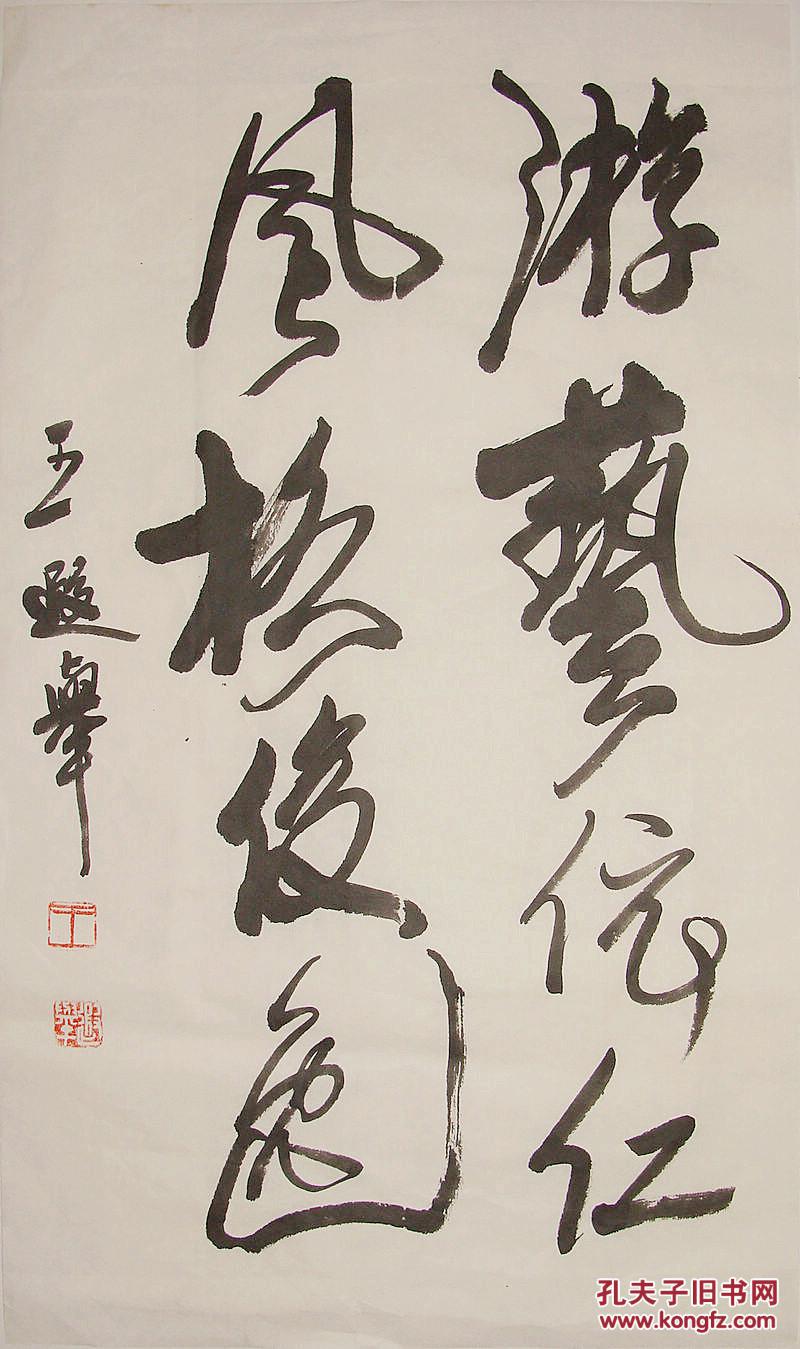 游藝依仁
風格俊逸
王遐舉
王
遐舉
孔夫子旧书网
www.kongfz.com